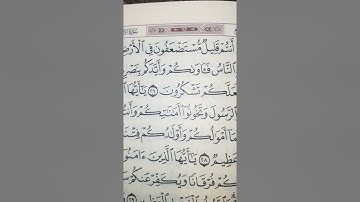 أَنتُمْ قَلِيلٌ مُّسْتَضْعَفُونَ فِى ٱلْأَرْضِ
ٱلنَّاسُ فَـَٔاوَىٰكُمْ وَأَيَّدَكُم بِنَصْرِ
لَعَلَّكُمْ تَشْكُرُونَ ٢٦ يَـٰٓأَيُّهَا
ٱلرَّسُولَ وَتَخُونُوٓا۟ أَمَـٰنَـٰتِكُمْ وَأَنتُ
أَمْوَٰلُكُمْ وَأَوْلَـٰدُكُمْ فِتْنَ
عَظِيمٌ ٢٨ يَـٰٓأَيُّهَا ٱلَّذِينَ ءَامَنُو
كُمْ فُرْقَانًا وَيُكَفِّرْ عَنكُمْ سَ